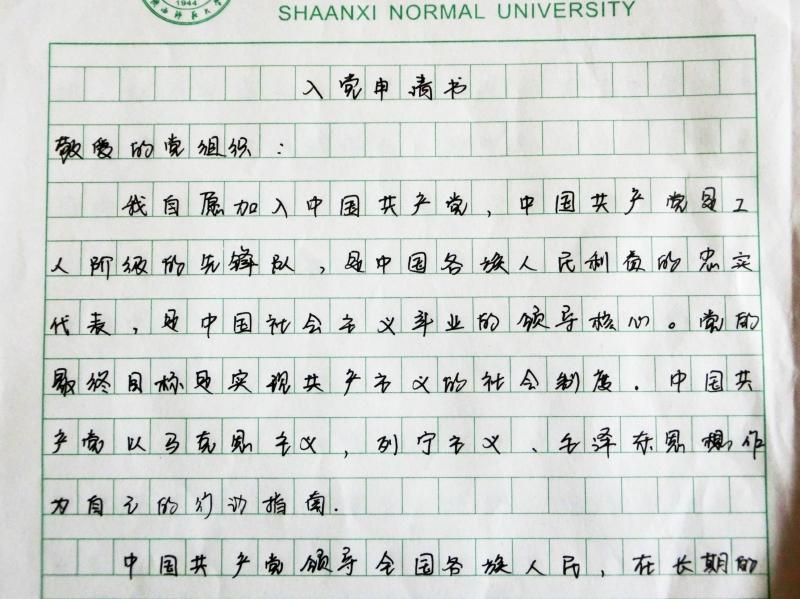 1944
陕西师范大学
SHAANXI NORMAL UNIVERSITY
入党申请书
敬爱的党组织：
我自愿加入中国共产党，中国共产党是工
人阶级的先锋队，是中国各族人民利益的忠实
代表，是中国社会主义事业的领导核心。党的
最终目标是实现共产主义的社会制度．中国共
产党以马克思主义，列宁主义、毛泽东思想作
为自己的行动指南．
中国共产党领导全国各族人民，在长期的